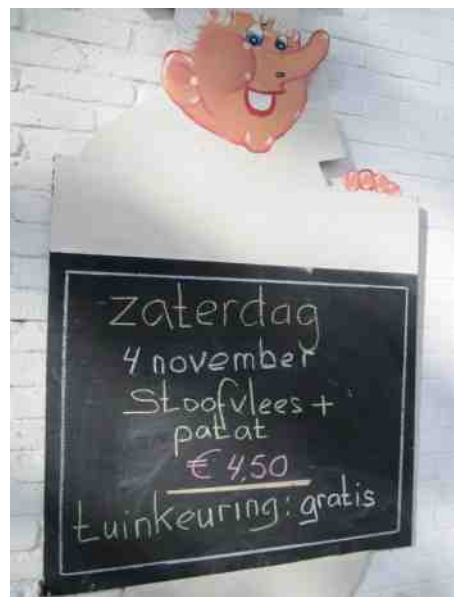 zaterdag
4 november
Stoofvlees +
patat
€ 4,50
tuinkeuring: gratis